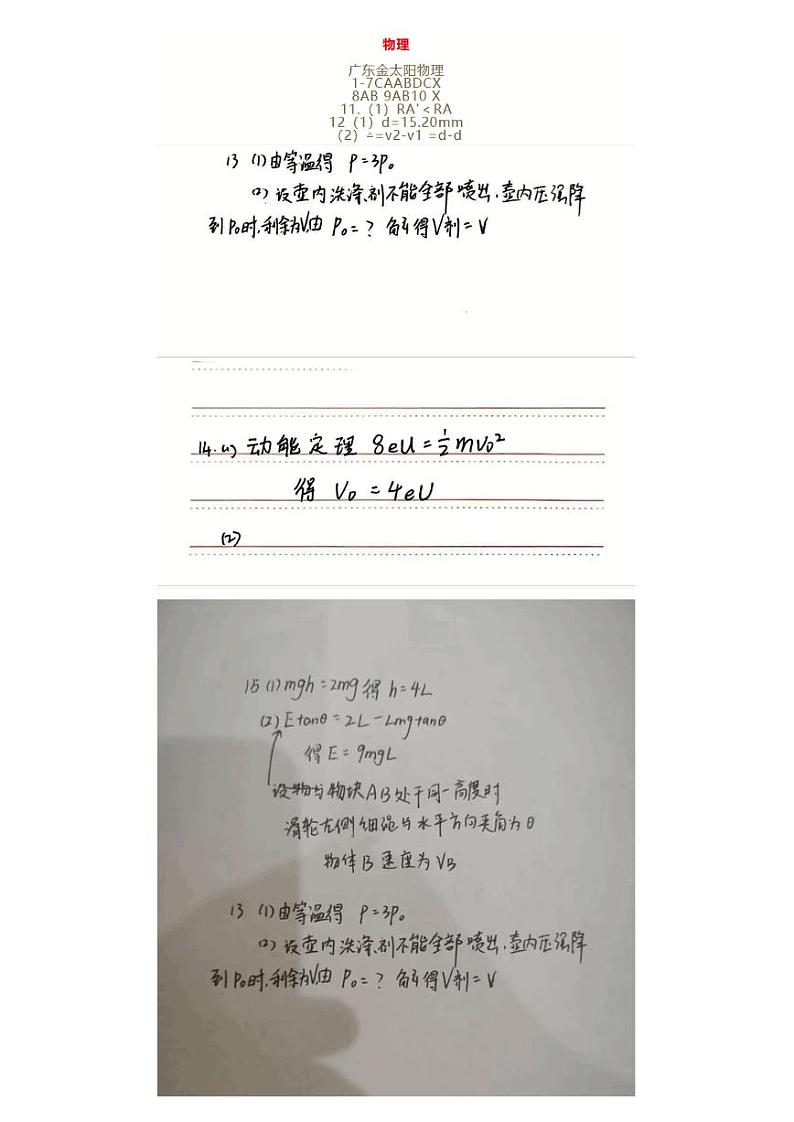 物理
广东金太阳物理
1-7CAABDCX
8AB 9AB10 X
11.（1）RA'<RA
12（1）d=15.20mm
（2）△=v2-v1 =d-d
13 (1)由等温得 P=3P₀
(2)设壶内洗涤剂不能全部喷出,壶内压强降
到P₀时,剩余为V,由 P₀=? 解得V剩=V
14.(1)动能定理 8eU=½mv₀²
得 V₀=4eU
(2)
15 (1)mgh=2mg得 h=4L
(2)Etanθ=2L-Lmgtanθ
得E=9mgL
设物与物块AB处于同一高度时
滑轮左侧细绳与水平方向夹角为θ
物体B速度为VB
13 (1)由等温得 P=3P₀
(2)设壶内洗涤剂不能全部喷出,壶内压强降
到P₀时,剩余为V,由 P₀=? 解得V剩=V